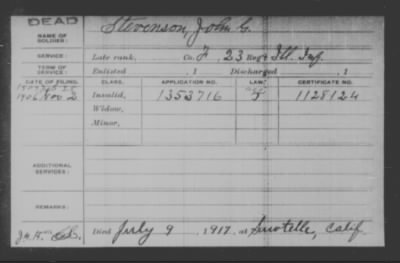 DEAD
Stevenson, John G.
NAME OF SOLDIER:
SERVICE: Late rank, Co. F, 23 Reg't Ill. Inf.
TERM OF SERVICE: Enlisted , 1 Discharged , 1
DATE OF FILING. CLASS. APPLICATION NO. LAW. CERTIFICATE NO.
1906 Nov 2 Invalid, 1353716 1128124
Widow,
Minor,
ADDITIONAL SERVICES:
REMARKS:
Died July 9 , 1917, at Sawtelle, Calif.